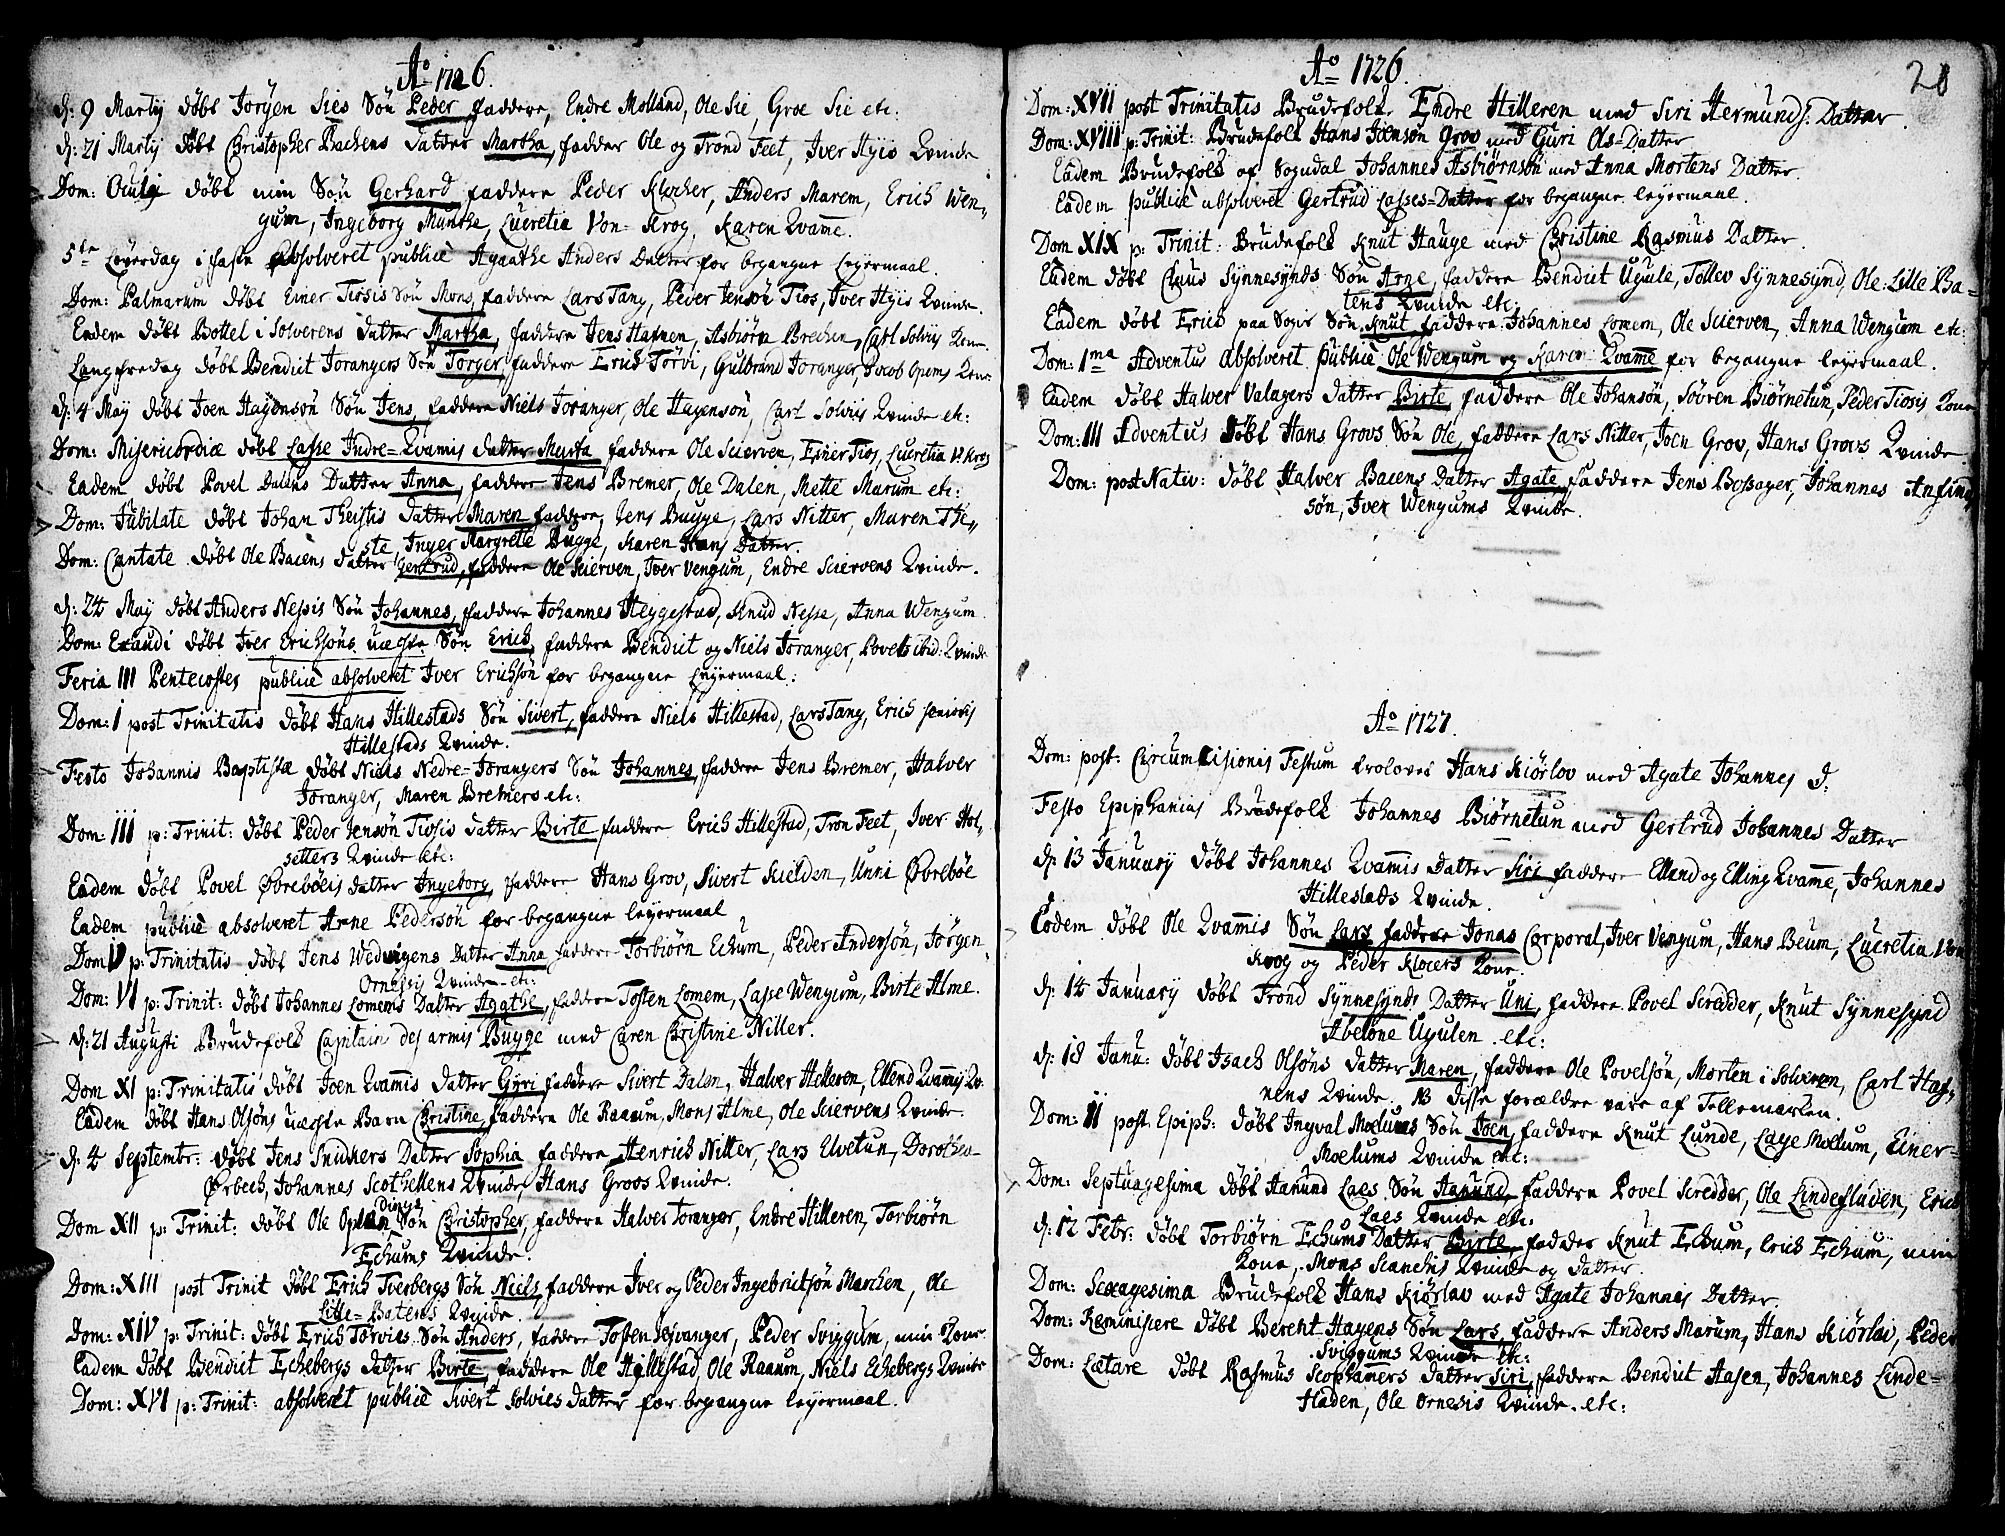 Ao 1726.
d: 9 Martij døbt Joryen Sies Søn Peder, faddere, Endre Molland, Ole Sie, Groe Sie etc:
d: 21 Martij døbt Christopher Bachens datter Martha, faddere Ole og Trond Feet, Iver Hyis Qvinde
Dom: Oculi døbt min Søn Gerhard faddere Peder Klocker, Anders Marem, Erich Wen,,
gum, Ingeborg Munthe, Lucretia Von Krog, Karen Qvamme.
5te Løverdag i faste Absolveret publicè Agaathe Anders Datter for begangne Leyermaal.
Dom: Palmarum døbt Einer Tiosis Søn Mons, faddere Lars Tang, Peder Jensøn Tios, Iver Hyis Qvinde.
Eadem døbt Bottel i Solverens datter Martha, faddere Jens Hafnen, Asbiørn Brechen, Carl Solviis Kone.
Langfredag døbt Bendict Jorangers Søn Torger, faddere Erich Torvi, Gulbrand Joranger, Jacob Opems Kone
d: 4 Maij døbt Joen Hagensøn Søn Jens, faddere Niels Joranger, Ole Hagensøn, Carl Solviis Qvinde etc:
Dom: Misericordiæ døbt Lasse Indre-Qvamis datter Marta faddere Ole Scierven, Einer Tios, Lucretia V: Krog
Eadem døbt Povel Dalens Datter Anna, faddere Jens Bremer, Ole Dalen, Mette Marum etc:
Dom: Jubilate døbt Johan Theistis datter Maren faddere, Jens Bugge, Lars Nitter, Maren The,,
ste, Inger Margrete Bugge, Karen Hans Datter.
Dom: Cantate døbt Ole Bacens datter Gertrud, faddere Ole Scierven, Iver Vengum, Endre Sciervens Qvinde.
d: 24 Maij døbt Anders Nessis Søn Johannes, faddere Johannes Heggestad, Knud Nesse, Anna Wengum.
Dom: Exaudi døbt Iver Erichsøns uægte Søn Erich, faddere Bendict og Niels Joranger, Povels ibid: Qvinde
Feria III Pentecostes publicè absolveret Iver Erichsøn for begangne Leyermaal.
Dom: I post Trinitatis døbt Hans Hillestads Søn Sivert, faddere Niels Hillestad, Lars Tang, Erich senioris
Hillestads Qvinde.
Festo Johannis Baptistæ døbt Niels Nedre-Jorangers Søn Johannes, faddere Jens Bremer, Halver
Joranger, Maren Bremers etc:
Dom: III p: Trinit: døbt Peder Jensøn Tiosis datter Birte faddere Erich Hillestad, Tron Feet, Iver Hol,,
setters Qvinde etc:
Eadem døbt Povel Øvrebøeis datter Ingeborg, faddere Hans Grov, Sivert Scielden, Unni Øvrebøe
Eadem publicè absolveret Arne Pedersøn for begangne Leyermaal
Dom: V p: Trinitatis døbt Jens Wedvigens Datter Anna faddere Torbiørn Echum, Peder Andersøn, Jørgen
Ornessis Qvinde etc:
Dom: VI p: Trinit: døbt Johannes Lomems Datter Agathe, faddere Tosten Lomem, Lasse Wengum, Birte Alme.
d: 21 Augusti Brudefolk Capitain des armis Bugge med Caren Christine Nitter.
Dom XI p: Trinitatis døbt Joen Qvamis datter Gyri faddere Sivert Dalen, Halver Hilleren, Ellend Qvamis Qv.
Eadem døbt Hans Olsøns uægte Barn Christine, faddere Ole Raaum, Mons Alme, Ole Sciervens Qvinde.
d: 4 Septembr: døbt Jens Snidkers Datter Sophia faddere Henrich Nitter, Lars Elvetun, Dorothea
Ørbech, Johannes Scothellens Qvinde, Hans Groos Qvinde.
Dom XII p: Trinit: døbt Ole Søn Christopher, faddere Halver Joranger, Endre Hilleren, Torbiørn
Echums Qvinde.
Dom: XIII post Trinit døbt Erich Tverbergs Søn Niels, faddere Iver og Peder Ingebrictsøn Marchen, Ole
Litle-Batens Qvinde.
Dom: XIV p: Trinit: døbt Erich Torvies Søn Anders, faddere Tosten Jesvanger, Peder Sviggum, min Kone.
Eadem døbt Bendict Echebergs datter Birte, faddere Ole Hillestad, Ole Raaum, Niels Echebergs Qvinde
Dom: XVI p: Trinit: absolveret publicè Sivert Solvies datter for begangne Leyermaal.
Ao 1726.
28
Dom: XVII post Trinitatis Brudefolk Endre Hilleren med Siri Hermunds: Datter.
Dom: XVIII p: Trinit: Brudefolk Hans Joensøn Grov med Guri Ols=Datter
Eadem Brudefolk af Sogndal Johannes Asbiørnsøn med Anna Mortens Datter.
Eadem publicè absolveret Gertrud Lasses=Datter for begangne Leyermaal.
Dom XIX p: Trinit: Brudefolk Knut Hauge med Christine Rasmus Datter.
Eadem døbt Claus Synnesynds Søn Arne, faddere Bendict Ugule, Tollev Synnesynd, Ole Lille Ba=
tens Qvinde etc:
Eadem døbt Erich paa Sogis Søn Knut faddere Johannes Lomem, Ole Scierven, Anna Wengum etc:
Dom: 1ma Adventus absolveret publicè Ole Wengum og Karen Qvamme for begangne Leyermaal.
Eadem døbt Halver Valagers datter Birte, faddere Ole Johansøn, Søvren Biørnetun, Peder Tiosis Kone
Dom: III Adventus døbt Hans Grovs Søn Ole, faddere Lars Nitter, Joen Grov, Hans Grovs Qvinde
Dom: post Nativ: døbt Halver Bacens datter Agate, faddere Jens Bossager, Johannes Anfind,,
søn, Iver Wengums Qvinde.
Ao 1727.
Dom: post: Circumcisionis Festum trolovet Hans Kiørlov med Agate Johannes D:
Festo Epiphanias Brudefolk Johannes Biørnetun med Gertrud Johannes Datter
d: 13 Januarij døbt Johannes Qvamis datter Siri faddere Ellend og Elling Qvamme, Johannes
Hillestads Qvinde.
Eodem døbt Ole Qvamis Søn Lars faddere Jonas Corporal, Iver Vengum, Hans Beum, Lucretia Von
Krog og Peder Klocers Kone.
d: 14 Januarij døbt Trond Synnesynds Datter Uni, faddere Povel Scredder, Knut Synnesynd
Abelone Ugulen etc:
d: 18 Janu: døbt Isach Olsøns datter Maren, faddere Ole Povelsøn, Morten i Solveren, Carl Haf,,
nens Qvinde. NB disse forældre vare af Tellemarken.
Dom: II post Epiph: døbt Ingval Moelums Søn Joen faddere Knut Lunde, Lage Moelum, Einer=
Moelums Qvinde etc:
Dom: Septuagesima døbt Hanund Laes Søn Hanund, faddere Povel Scredder, Ole Lindefladen, Erich
Laes Qvinde etc:
d: 12 Febr: døbt Torbiørn Echums Datter Birte, fadder Knut Echum, Erich Echum, min
Kone, Mons Scanchis Qvinde og datter.
Dom: Sexagesima Brudefolk Hans Kiørlav med Agate Johannes Datter.
Dom: Reminisere døbt Berent Hagens Søn Lars, faddere Anders Marum, Hans Kiørlav, Peder
Sviggums Qvinde etc:
Dom: Lætare døbt Rasmus Scophamers datter Siri, faddere Bendict Hasen, Johannes Linde=
fladen, Ole Ornesis Qvinde etc: